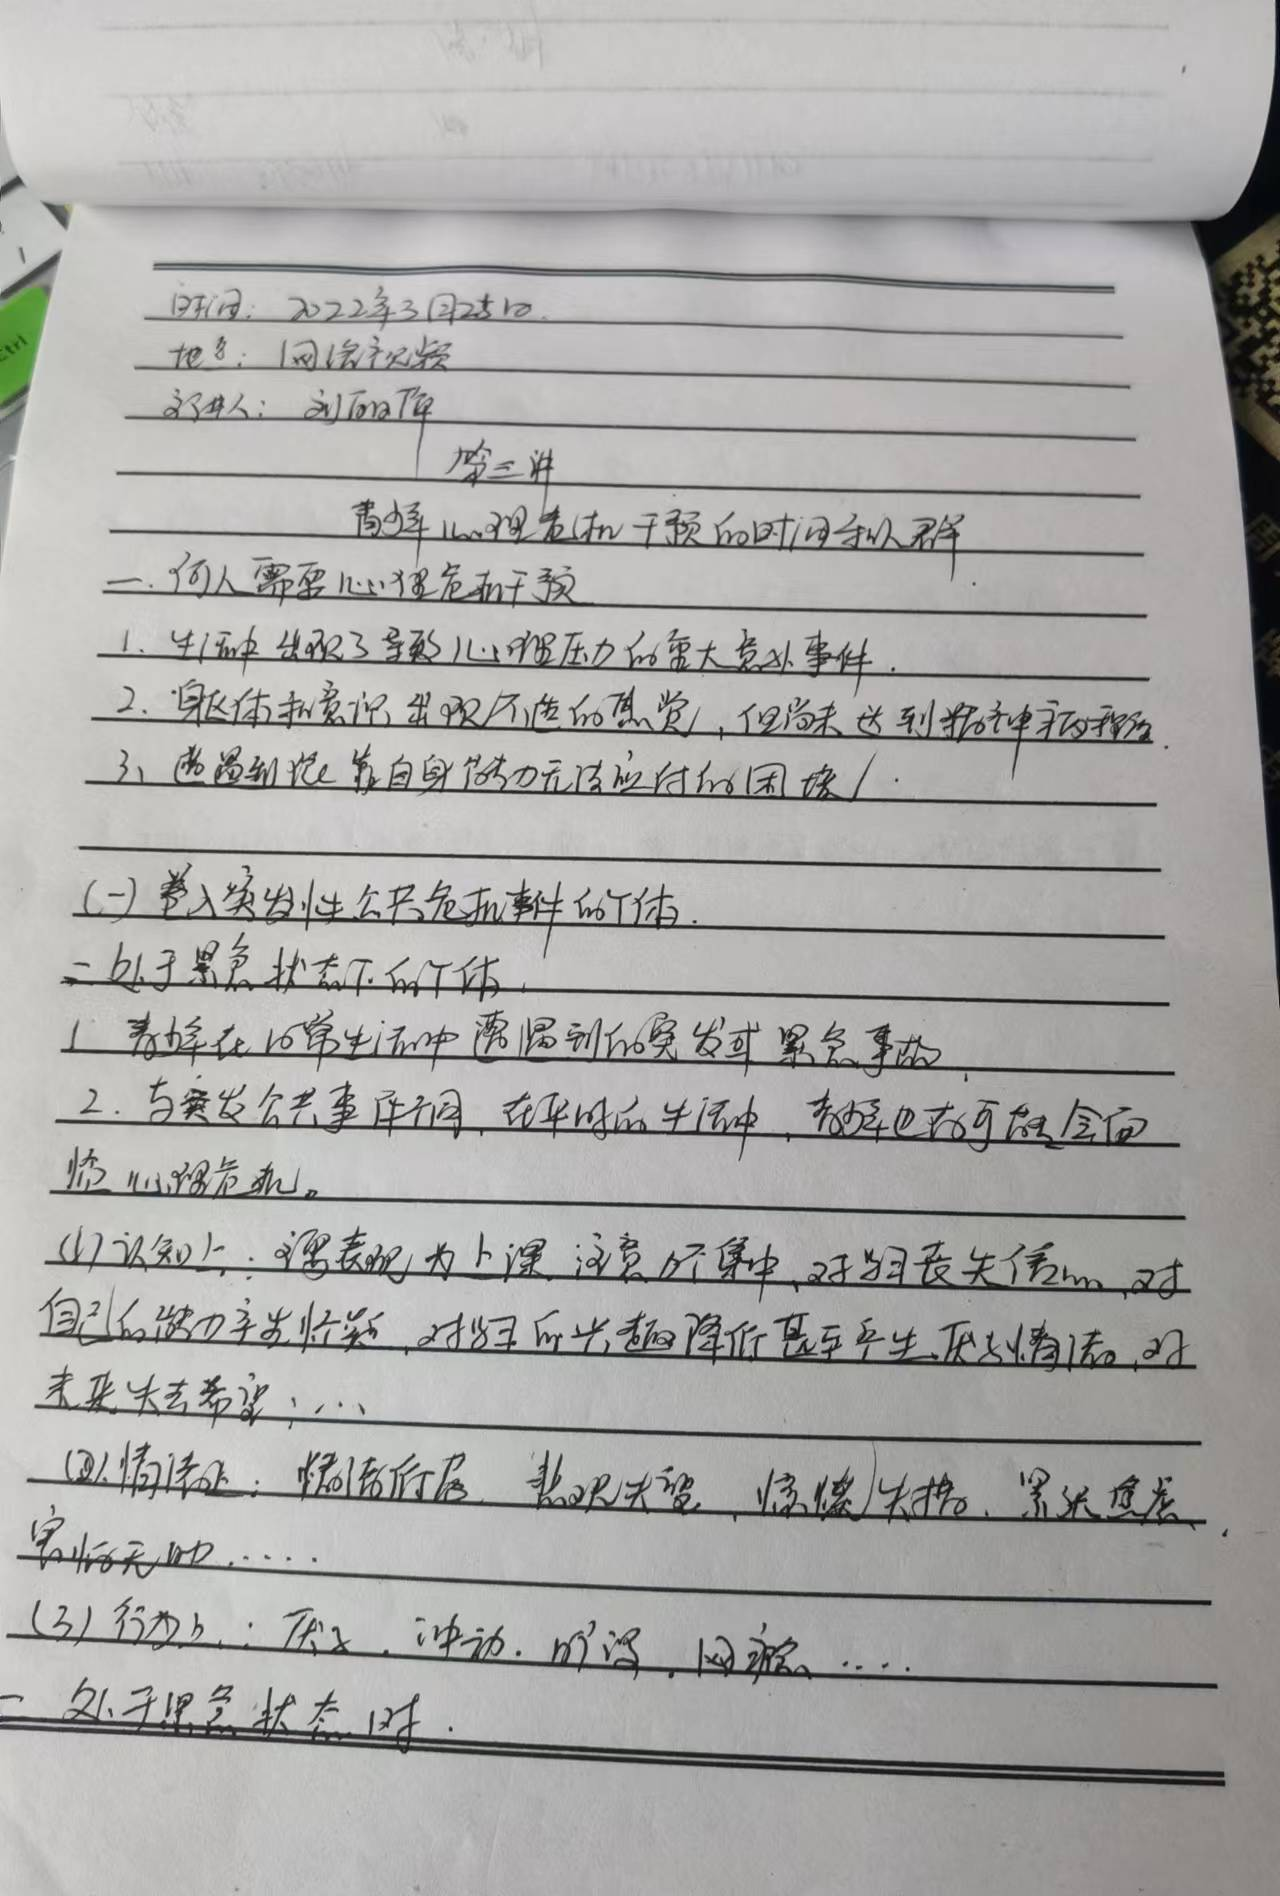 时间：2022年3月25日.
地点：网络视频
主讲人：刘
第三讲
青少年心理危机干预的时间和人群
一.何人需要心理危机干预
1. 生活中出现了导致心理压力的重大意外事件.
2. 身体和意识出现不适的感觉，但尚未达到精神病程度.
3、遭遇到仅靠自身能力无法应付的困境.
(一) 卷入突发性公共危机事件的个体.
二 处于紧急状态下的个体.
1 青少年在日常生活中遭遇到的突发或紧急事故,
2. 与突发公共事件不同, 在平时的生活中, 青少年也有可能会面
临心理危机。
(1)认知上: 主要表现为上课注意力不集中,对学习丧失信心,对
自己的能力产生怀疑,对学习的兴趣降低甚至产生厌学情绪,对
未来失去希望; ...
(2)情绪上: 情绪低落 悲观失望, 惊慌失措、紧张焦虑、
害怕无助.....
(3) 行为上: 厌学. 冲动. 网瘾、.....
一 处于紧急状态时.